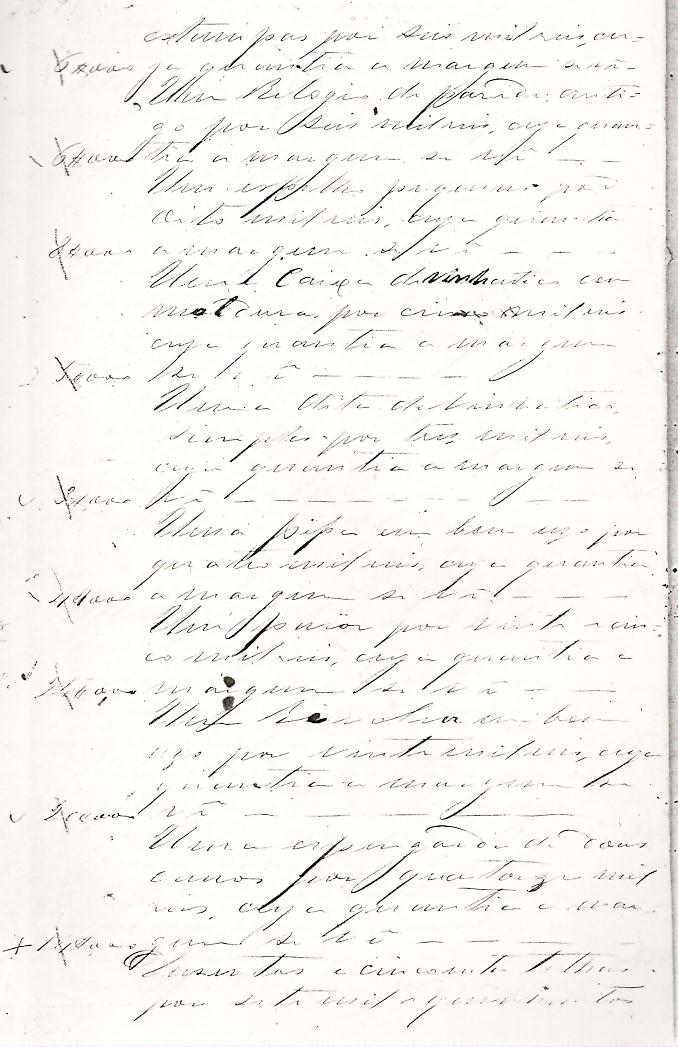 estampas por seis mil reis, cu-
6#000 ja quantia a margem se vê-
Um Relogio de parede, anti-
go por seis mil reis, cuja quan-
6#000 tia a margem se vê - -
Um espelho pequeno por
oito mil reis, cuja quantia
8#000 a margem se vê - - -
Uma Caixa de vinhatico com
moldura, por cinco mil reis
cuja quantia a margem
5#000 se vê - - - -
Uma dita de vinhatico,
simples por tres mil reis,
cuja quantia a margem se
3#000 vê - - - - - - -
Uma pipa em bom uzo por
quatro mil reis, cuja quantia
4#000 a margem se vê - - -
Um por vinte e cin-
co mil reis, cuja quantia a
25#000 margem se vê - -
Um Rewolver em bom
uzo por vinte mil reis, cuja
quantia a margem se
20#000 vê - - - -
Uma espingarda de dous
canos por quatorze mil
reis, cuja quantia a mar-
+ 14#000 gem se vê - - -
Duzentas e cincoenta telhas
por sete mil e quinhentos